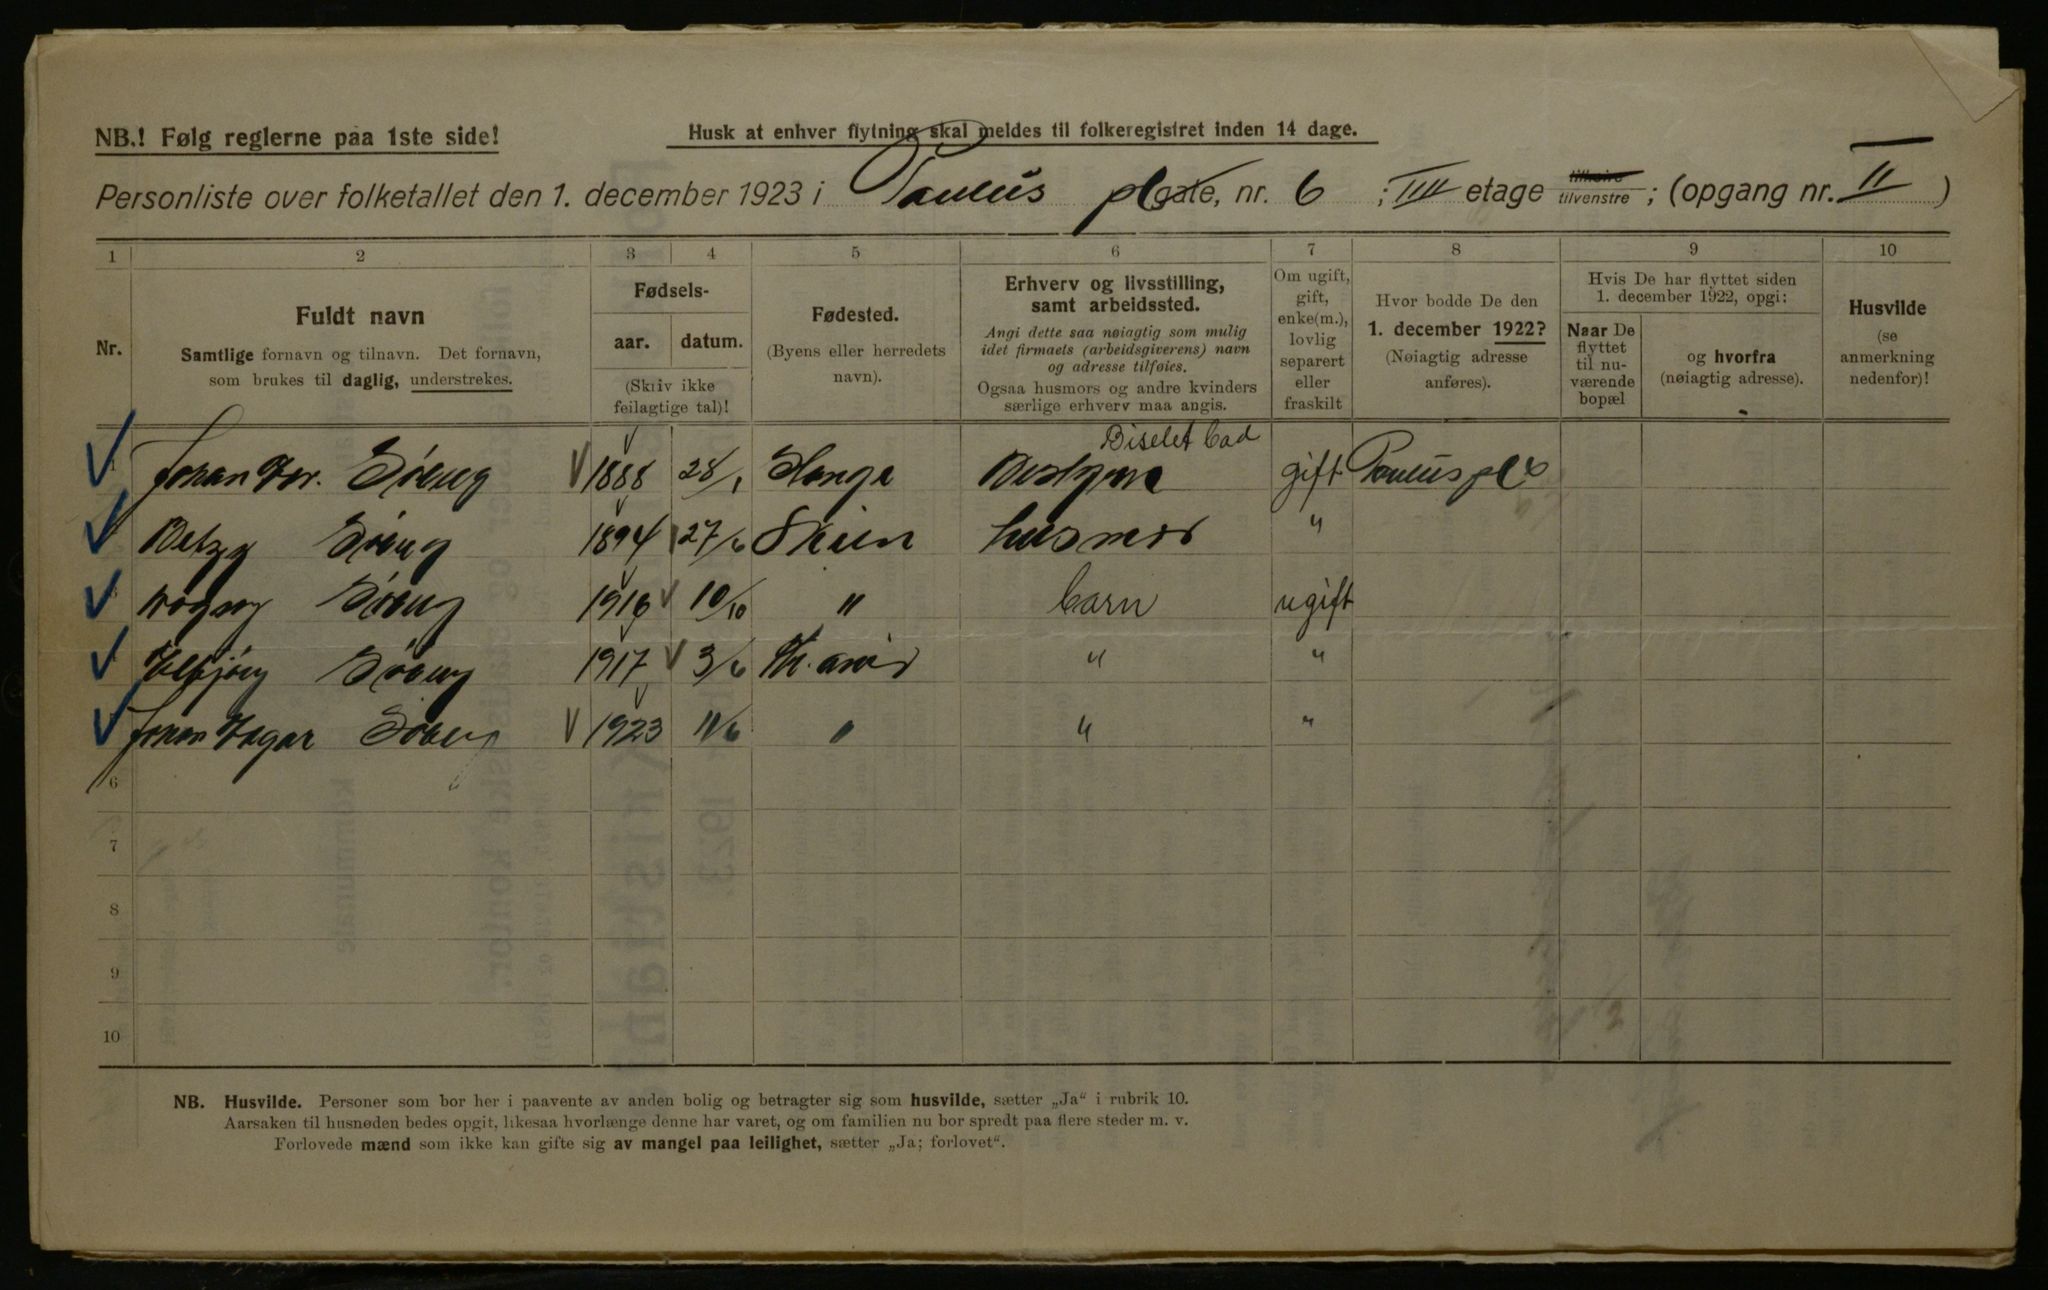 NB.! Følg reglerne paa 1ste side!
Husk at enhver flytning skal meldes til folkeregistret inden 14 dage.
Personliste over folketallet den 1. december 1923 i Paulus plgate, nr. 6 ; IIII etage tilhøire tilvenstre ; (opgang nr. II )
1 2 3 4 5 6 7 8 9 10
Nr.
Fuldt navn
Samtlige fornavn og tilnavn. Det fornavn,
som brukes til daglig, understrekes.
Fødsels-
aar. datum.
(Skriv ikke
feilagtige tal)!
Fødested.
(Byens eller herredets
navn).
Erhverv og livsstilling,
samt arbeidssted.
Angi dette saa nøiagtig som mulig
idet firmaets (arbeidsgiverens) navn
og adresse tilføies.
Ogsaa husmors og andre kvinders
særlige erhverv maa angis.
Om ugift,
gift,
enke(m.),
lovlig
separert
eller
fraskilt
Hvor bodde De den
1. december 1922?
(Nøiagtig adresse
anføres).
Hvis De har flyttet siden
1. december 1922, opgi:
Naar De
flyttet
til nu-
værende
bopæl
og hvorfra
(nøiagtig adresse).
Husvilde
(se
anmerkning
nedenfor)!
Biselet bad
Johan 1888 28/1 gift Paulus pl 6
1894 27/6 Skien husmor "
1916 10/10 " barn ugift
1917 3/6 " "
Johan 1923 11/6 " " "
6
7
8
9
10
NB. Husvilde. Personer som bor her i paavente av anden bolig og betragter sig som husvilde, sætter „Ja“ i rubrik 10.
Aarsaken til husnøden bedes opgit, likesaa hvorlænge denne har varet, og om familien nu bor spredt paa flere steder m. v.
Forlovede mænd som ikke kan gifte sig av mangel paa leilighet, sætter „Ja; forlovet“.